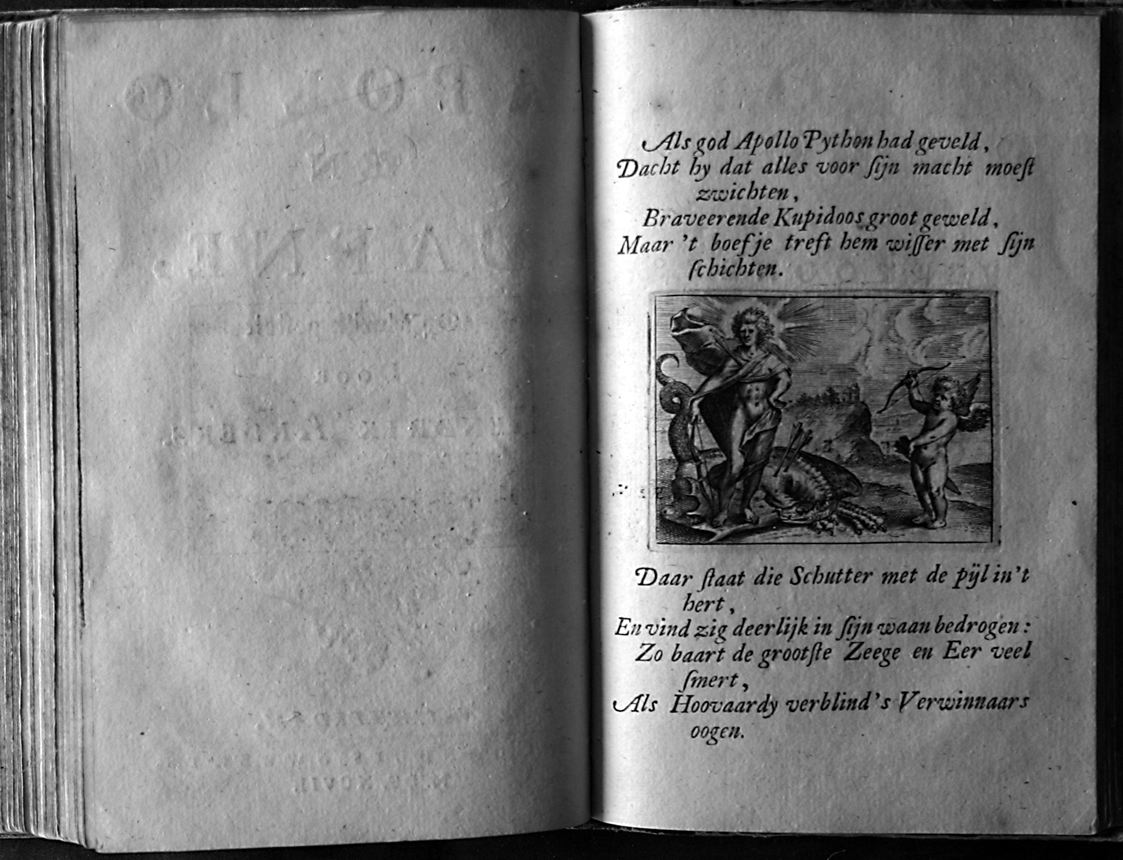 Als god Apollo Python had geveld,
Dacht hy dat alles voor ſijn macht moeſt
zwichten,
Braveerende Kupidoos groot geweld,
Maar 't boefje treft hem wiſſer met ſijn
ſchichten.
Daar ſtaat die Schutter met de pijl in't
hert,
En vind zig deerlijk in ſijn waan bedrogen:
Zo baart de grootſte Zeege en Eer veel
ſmert,
Als Hoovaardy verblind's Verwinnaars
oogen.